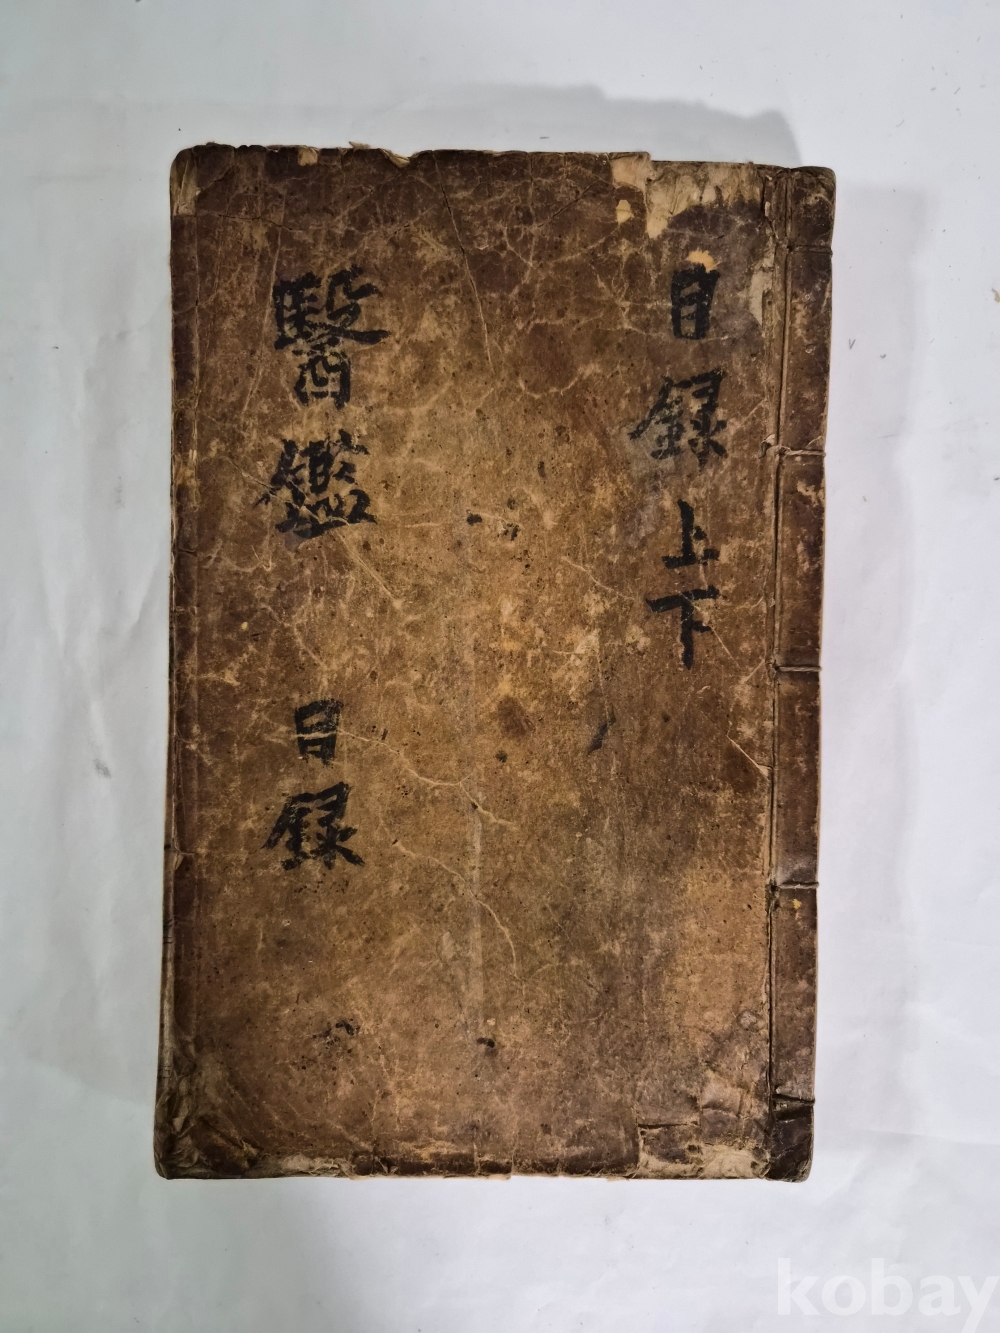 目錄上下
醫鑑 目錄
kobay